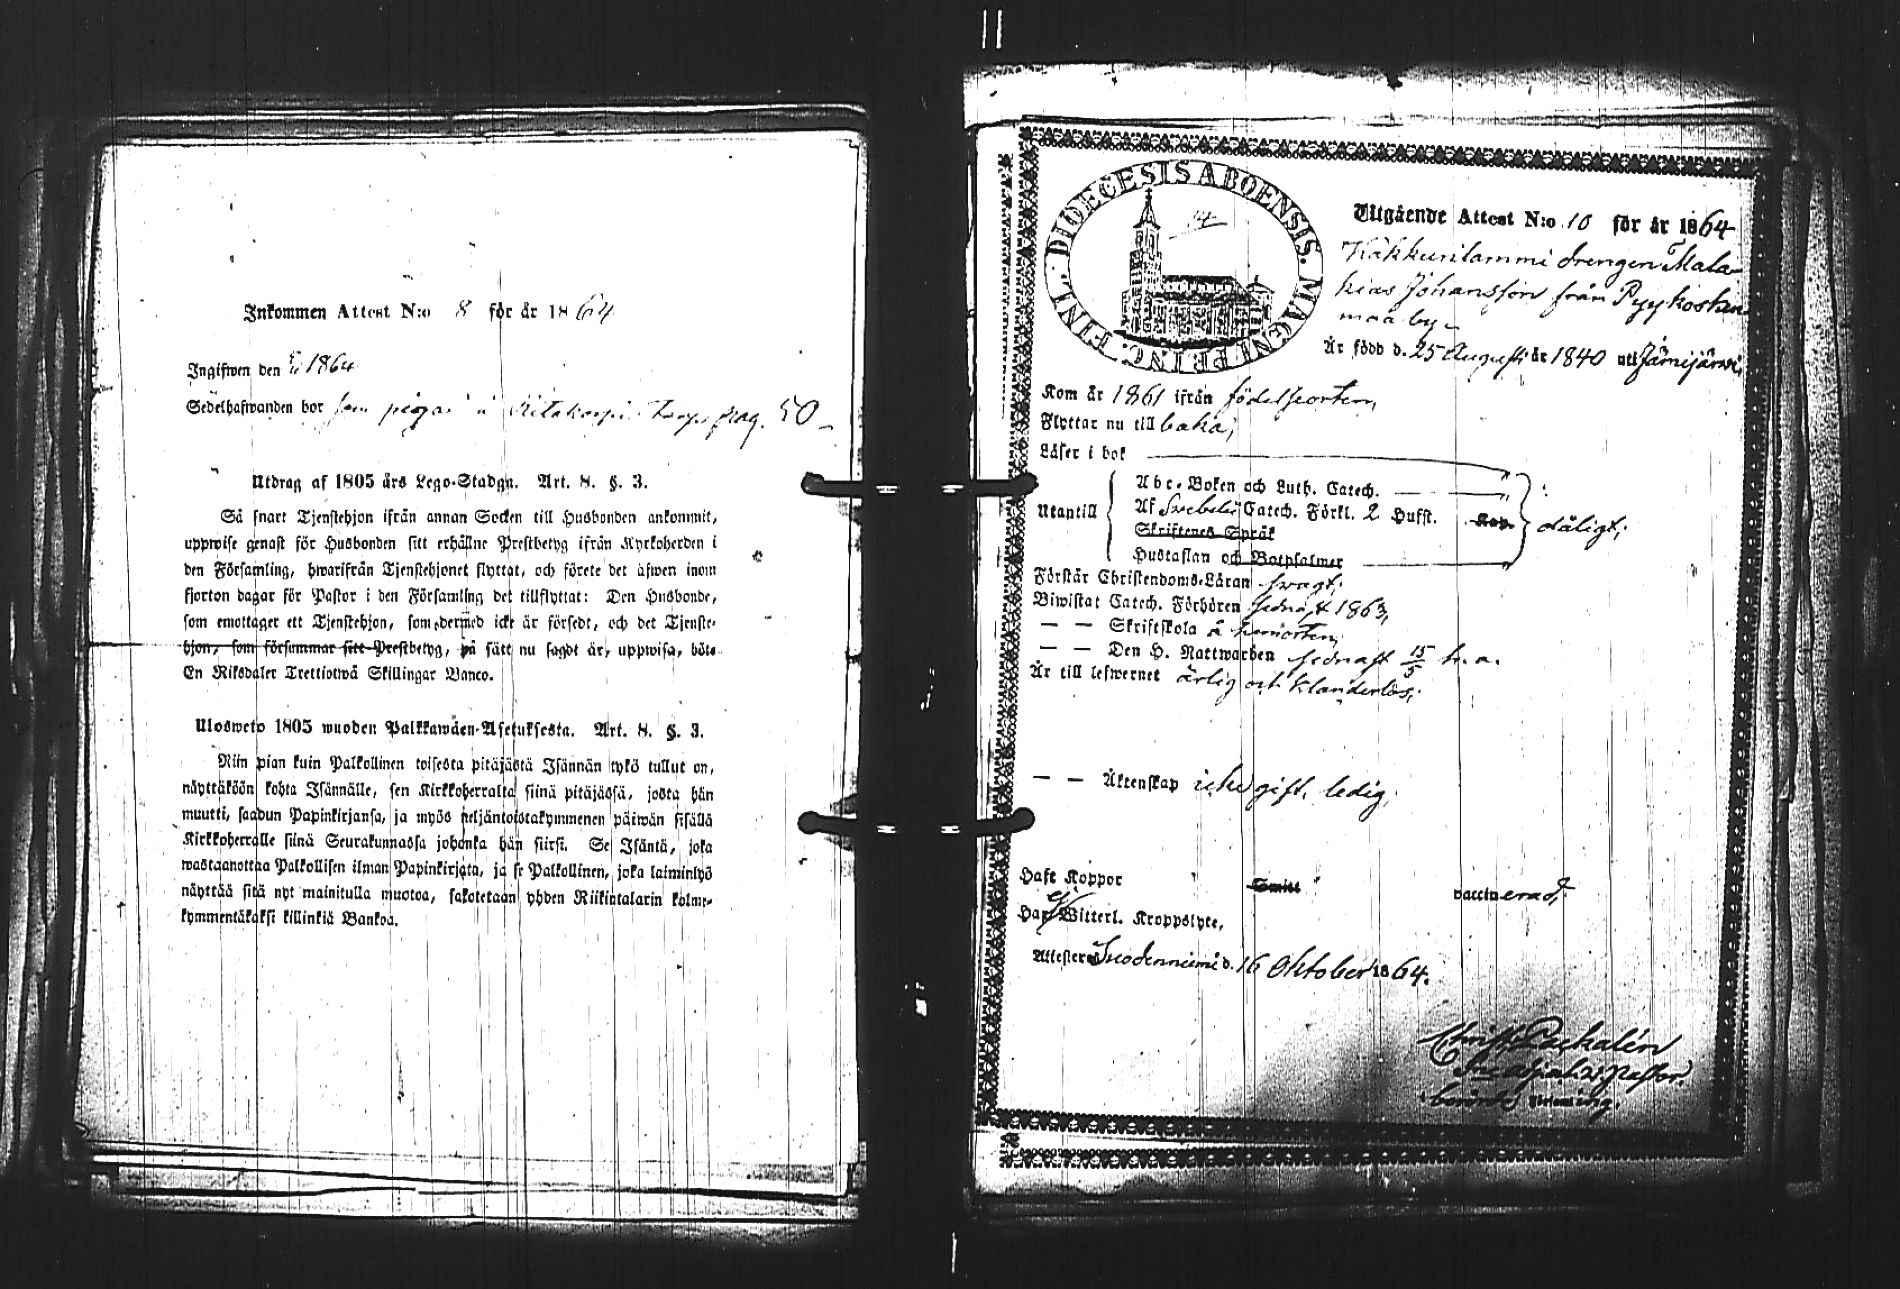 Inkommen Attest N:o 8 för år 1864
Ingifwen den 1864
Sedelhafwanden bor som piga i pag. 50
Utdrag af 1805 års Lego-Stadga. Art. 8. §. 3.
Så snart Tjenstehjon ifrån annan Socken till Husbonden ankommit,
uppwise genast för Husbonden sitt erhållne Prestbetyg ifrån Kyrkoherden i
den Församling, hwarifrån Tjenstehjonet flyttat, och förete det äfwen inom
fjorton dagar för Pastor i den Församling det tillflyttat: Den Husbonde,
som emottager ett Tjenstehjon, som dermed icke är försedt, och det Tjenste-
hjon, som försummar sitt Prestbetyg, på sätt nu sagdt är, uppwisa, böte
En Riksdaler Trettiotwå Skillingar Banco.
Ulosweto 1805 wuoden Palkkawäen-Asetuksesta. Art. 8. §. 3.
Niin pian kuin Palkollinen toisesta pitäjästä Isännän tykö tullut on,
näyttäköön kohta Isännälle, sen Kirkkoherralta siinä pitäjässä, josta hän
muutti, saadun Papinkirjansa, ja myös neljäntoistakymmenen päiwän sisällä
Kirkkoherralle siinä Seurakunnassa johonka hän siirsi. Se Isäntä, joka
wastaanottaa Palkollisen ilman Papinkirjata, ja se Palkollinen, joka laiminlyö
näyttää sitä nyt mainitulla muotoa, sakotetaan yhden Riikintalarin kolme-
kymmentäkaksi killinkiä Bankoa.
DIOECESIS ABOENSIS. MAGNI PRINC. FINL.
14
Utgående Attest N:o 10 för år 1864
Kakkurilammi drengen Mala-
kias Johansson från Pyykoskan
maa by
Är född d. 25 Augusti år 1840 uti Jämijärvi,
Kom år 1861 ifrån födelseorten,
Flyttar nu till baka;
Läser i bok
Abc-Boken och Luth. Catech.
Utantill Af Svebelii Catech. Förkl. 2 Hufst. Kap. dåligt;
Skriftenes Språk
Hustaflan och Botpsalmer
Förstår Christendoms-Läran svagt;
Biwistat Catech. Förhören sednast 1863,
— — Skriftskola å hemorten,
— — Den H. Nattwarden sednast 15/5 h. a.
Är till lefwernet ärlig och klanderlös;
— — Äktenskap icke gift, ledig;
Haft Koppor vaccinerad;
Har ej Witterl. Kroppslyte,
Attesterar Suodenniemi d. 16 Oktober 1864.
Christ. Packalén